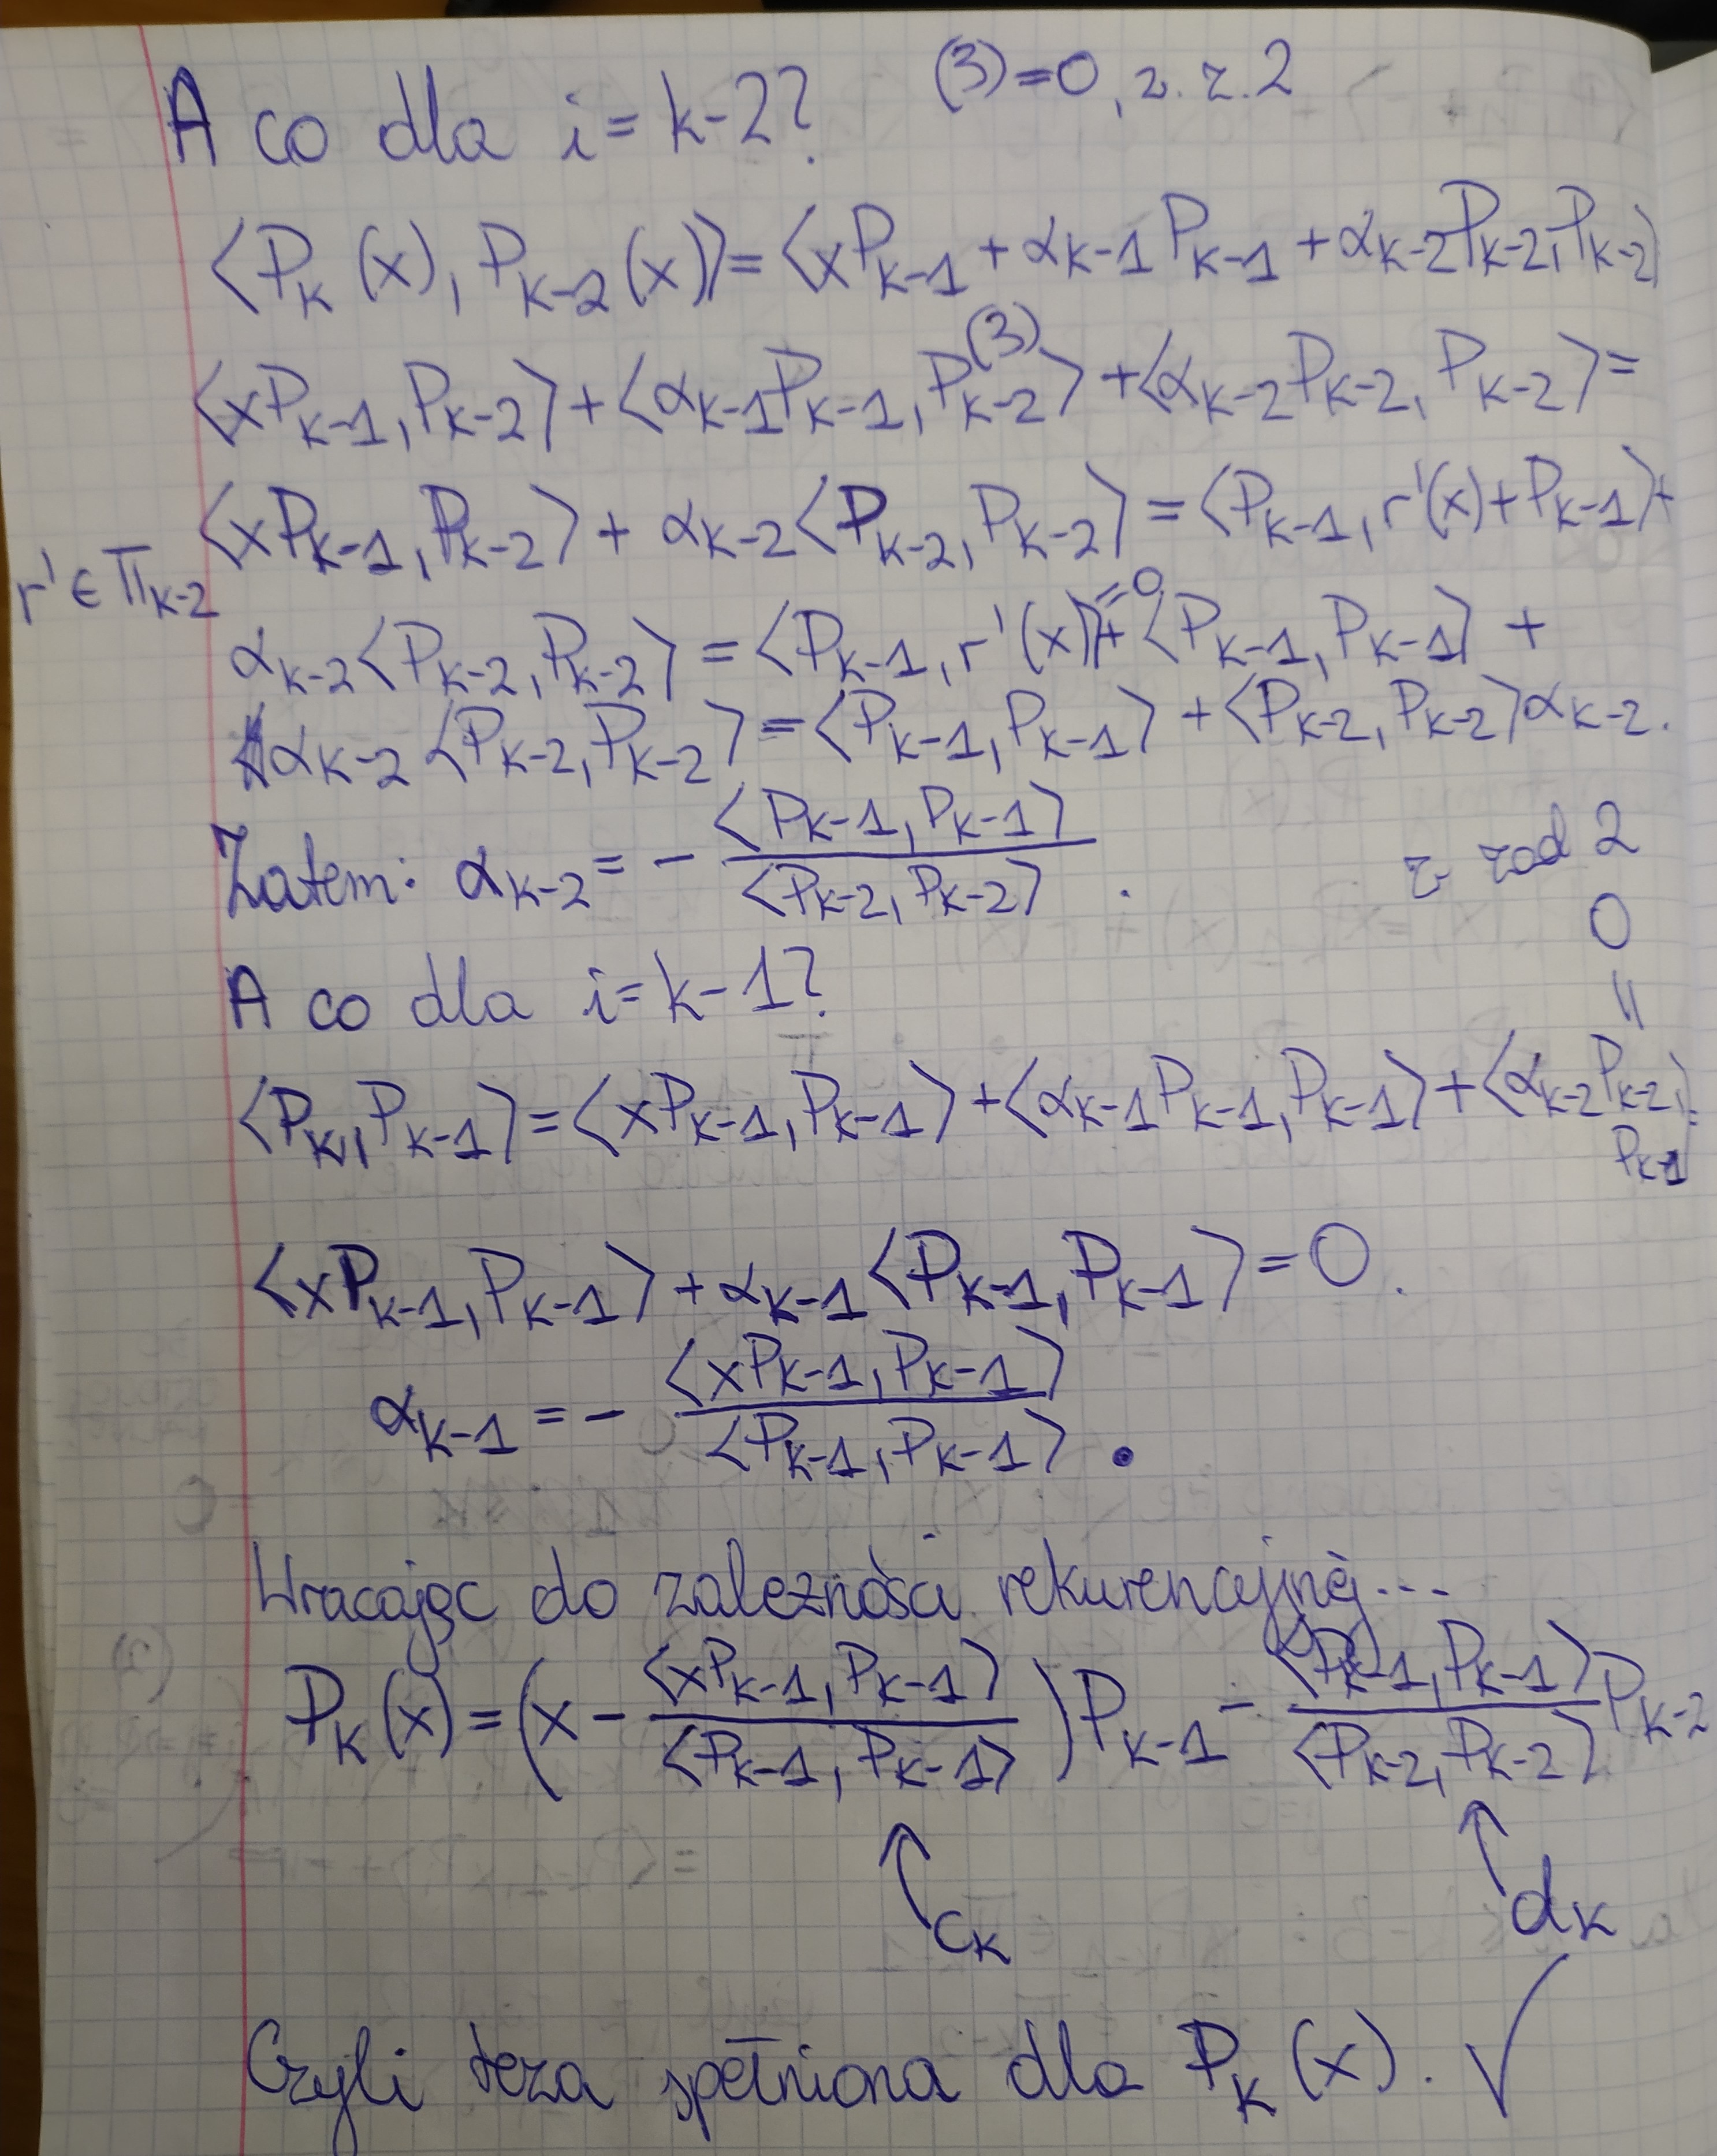 A co dla i=k-2? (3)=0, z. z. 2
⟨P_k(x), P_{k-2}(x)⟩ = ⟨xP_{k-1} + α_{k-1}P_{k-1} + α_{k-2}P_{k-2}, P_{k-2}⟩
⟨xP_{k-1}, P_{k-2}⟩ + ⟨α_{k-1}P_{k-1}, P_{k-2}⟩ (3) + ⟨α_{k-2}P_{k-2}, P_{k-2}⟩ =
⟨xP_{k-1}, P_{k-2}⟩ + α_{k-2}⟨P_{k-2}, P_{k-2}⟩ = ⟨P_{k-1}, r'(x)+P_{k-1}⟩ +
r' ∈ Π_{k-2}
α_{k-2}⟨P_{k-2}, P_{k-2}⟩ = ⟨P_{k-1}, r'(x)⟩ =0 + ⟨P_{k-1}, P_{k-1}⟩ +
α_{k-2}⟨P_{k-2}, P_{k-2}⟩ = ⟨P_{k-1}, P_{k-1}⟩ + ⟨P_{k-2}, P_{k-2}⟩α_{k-2}.
Zatem: α_{k-2} = - ⟨P_{k-1}, P_{k-1}⟩ / ⟨P_{k-2}, P_{k-2}⟩ .
z zad 2
0
=
A co dla i=k-1?
⟨P_k, P_{k-1}⟩ = ⟨xP_{k-1}, P_{k-1}⟩ + ⟨α_{k-1}P_{k-1}, P_{k-1}⟩ + ⟨α_{k-2}P_{k-2}, P_{k-1}⟩
⟨xP_{k-1}, P_{k-1}⟩ + α_{k-1}⟨P_{k-1}, P_{k-1}⟩ = 0.
α_{k-1} = - ⟨xP_{k-1}, P_{k-1}⟩ / ⟨P_{k-1}, P_{k-1}⟩ .
Wracając do zależności rekurencyjnej...
P_k(x) = (x - ⟨xP_{k-1}, P_{k-1}⟩ / ⟨P_{k-1}, P_{k-1}⟩)P_{k-1} - ⟨P_{k-1}, P_{k-1}⟩ / ⟨P_{k-2}, P_{k-2}⟩ P_{k-2}
↑ c_k ↑ d_k
Czyli teza spełniona dla P_k(x). ✓